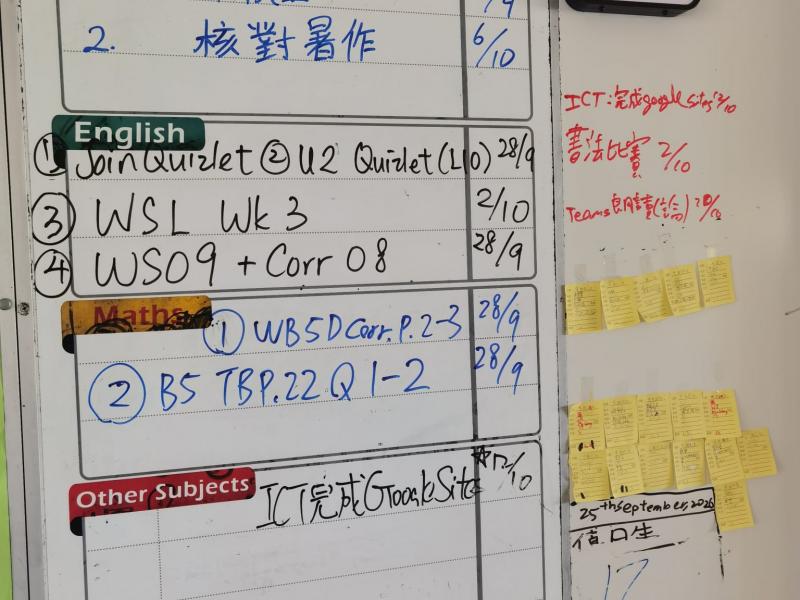 2. 核對暑作 6/10
English
① Join Quizlet ② U2 Quizlet (L10) 28/9
③ WSL Wk 3 2/10
④ WS09 + Corr 08 28/9
Maths
① WB5D Corr. P. 2-3 28/9
② B5 TB P.22 Q 1-2 28/9
Other Subjects
ICT完成Google Sites
ICT:完成google sites
書法比賽 2/10
Teams朗讀
25th september, 2026
值日生
17